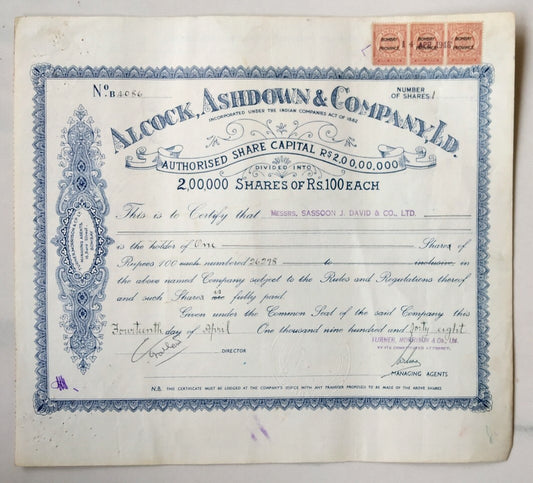 BOMBAY PROVINCE BOMBAY PROVINCE BOMBAY PROVINCE
No. B4086
NUMBER
OF SHARES: 1
ALCOCK, ASHDOWN & COMPANY, LD.
INCORPORATED UNDER THE INDIAN COMPANIES ACT OF 1882
AUTHORISED SHARE CAPITAL RS 2,00,00,000
DIVIDED INTO
2,00,000 SHARES OF RS. 100 EACH
This is to Certify that MESSRS. SASSOON J. DAVID & CO., LTD.
is the holder of One Share of
Rupees 100 each numbered 26298 to inclusive in
the above named Company subject to the Rules and Regulations thereof
and such Shares is fully paid.
Given under the Common Seal of the said Company this
Fourteenth day of April One thousand nine hundred and forty eight
TURNER, MORRISON & CO., LTD.
DIRECTOR
MANAGING AGENTS
N.B. THIS CERTIFICATE MUST BE LODGED AT THE COMPANY'S OFFICE WITH ANY TRANSFER PROPOSED TO BE MADE OF THE ABOVE SHARES
MANAGING AGENTS
BOMBAY